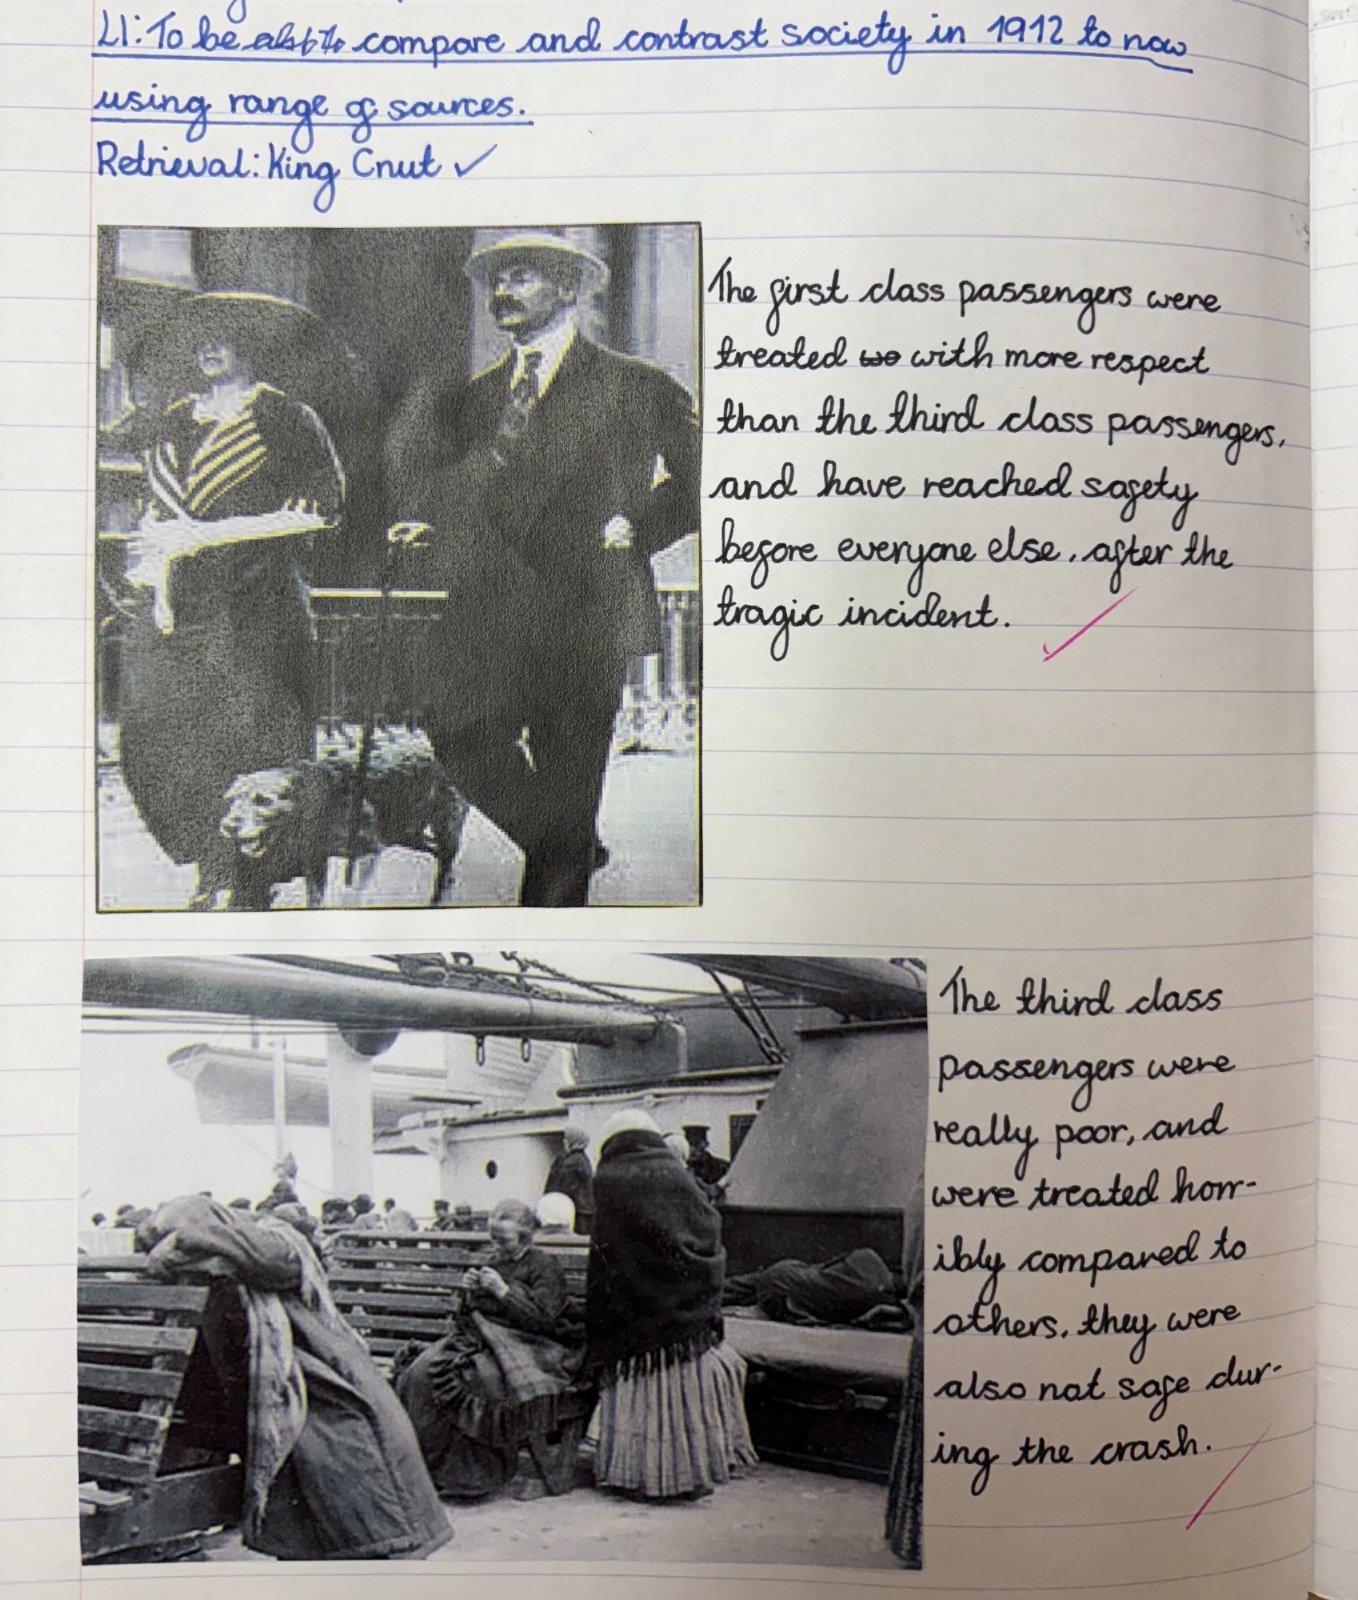 LI: To be able to compare and contrast society in 1912 to now
using range of sources.
Retrieval: King Cnut ✓
The first class passengers were
treated wo with more respect
than the third class passengers,
and have reached safety
before everyone else, after the
tragic incident.
The third class
passengers were
really poor, and
were treated horr-
ibly compared to
others, they were
also not safe dur-
ing the crash.